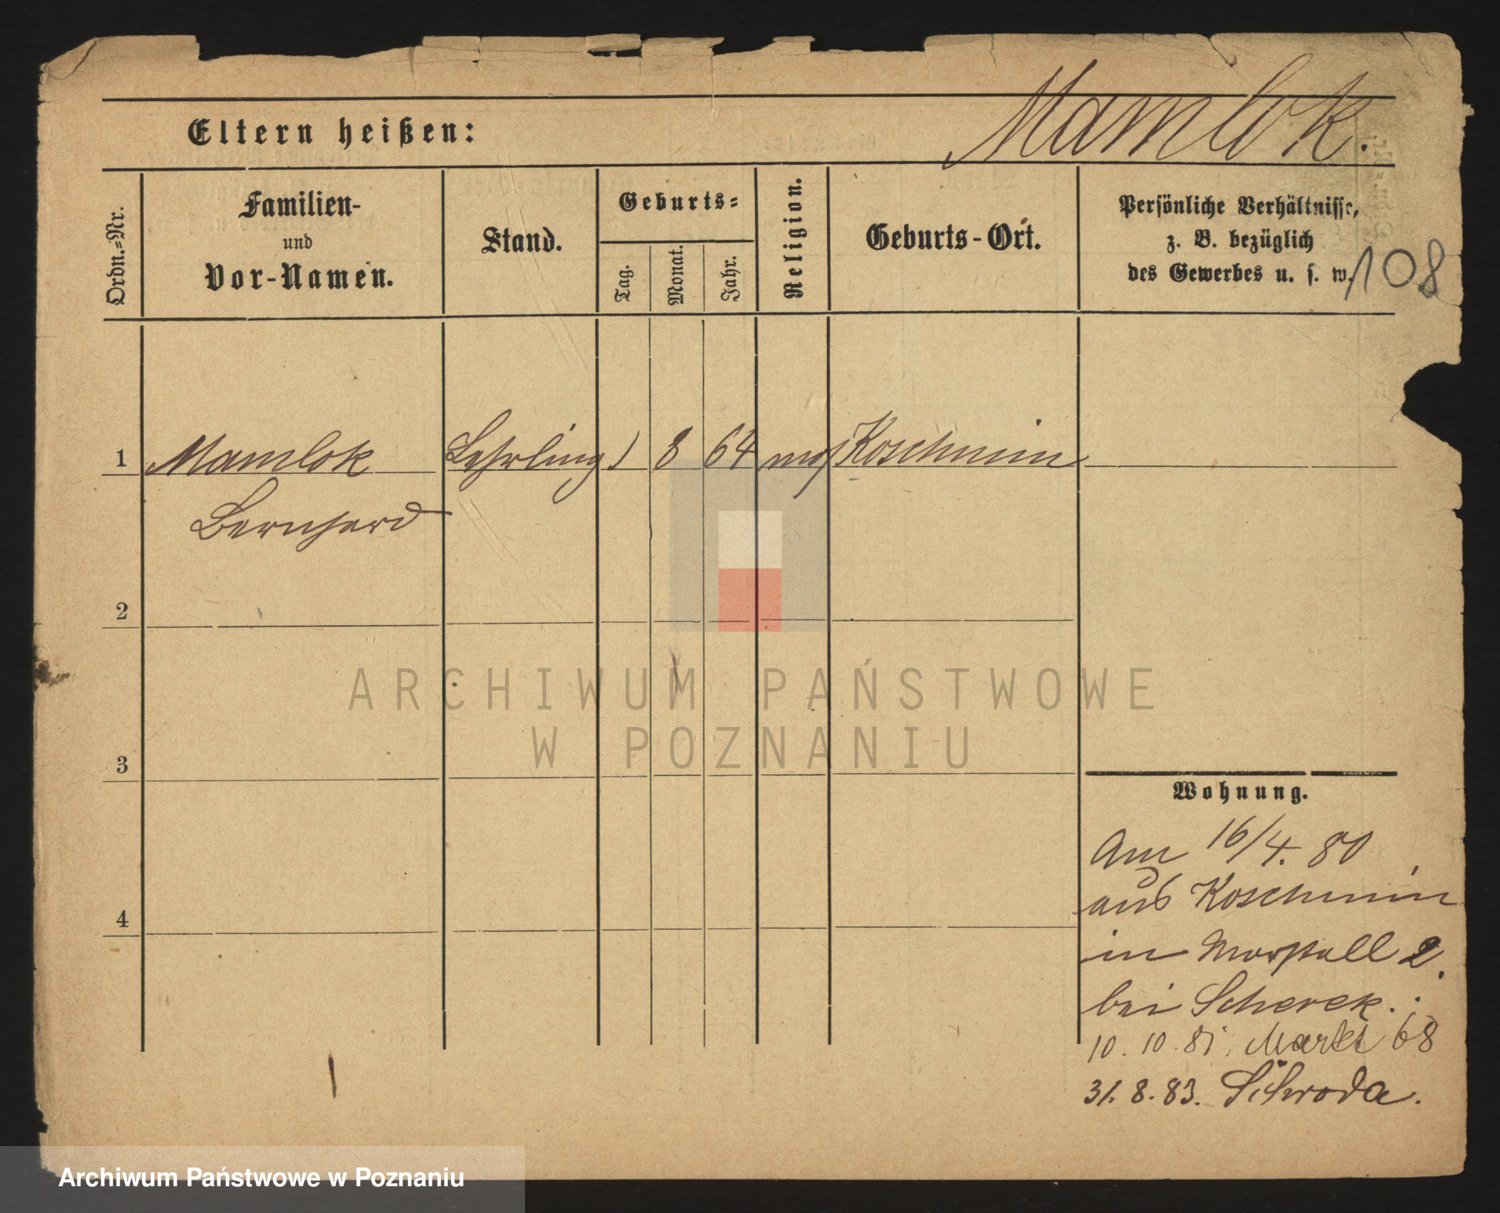 Mamlok.
Eltern heißen:
Ordn.=Nr.
Familien-
und
Vor-Namen.
Stand.
Geburts=
Tag.
Monat.
Jahr.
Religion.
Geburts-Ort.
Persönliche Verhältnisse,
z. B. bezüglich
des Gewerbes u. s. w.
108
1 Mamlok Lehrling 1 8 64 mos Koschmin
Bernhard
2
3
4
Wohnung.
Am 16/4. 80
aus Koschmin
in Marstall 2.
bei Scherek.
10. 10. 81. Markt 68
31. 8. 83. Schroda.
ARCHIWUM PAŃSTWOWE
W POZNANIU
Archiwum Państwowe w Poznaniu